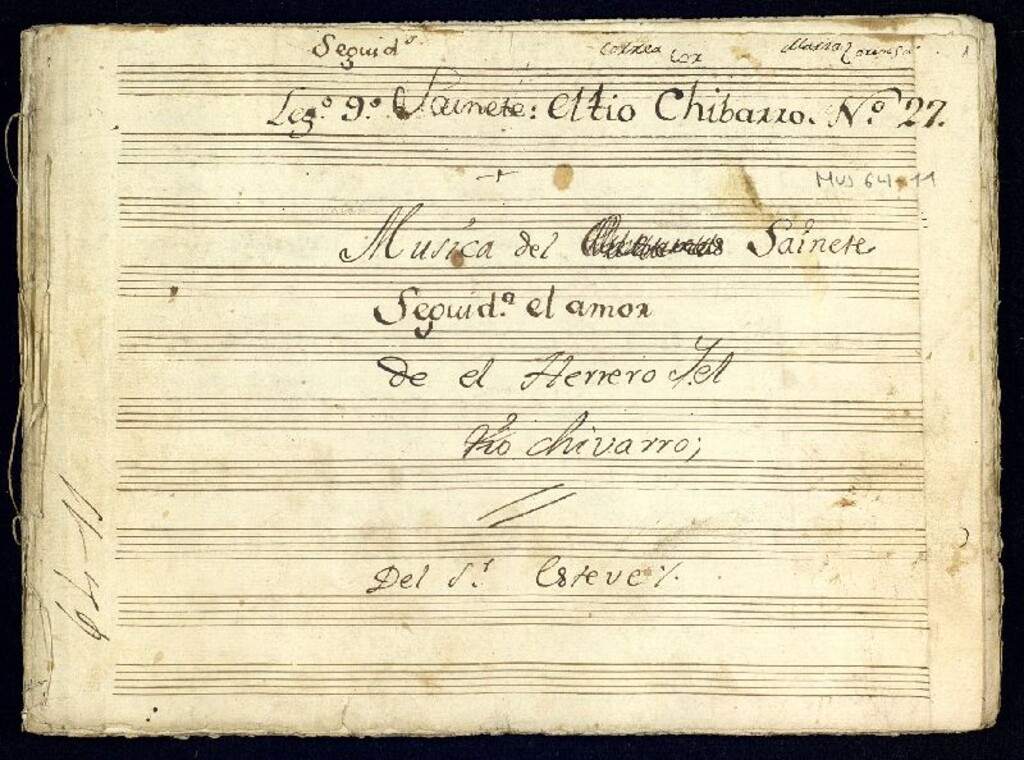 Seguid.s Correa Cox Maria Lorenza 1
Leg.o 9.o Sainete: el tio Chibarro. N.o 27.
MUS 64-11
Musica del Sainete
Seguid.a el amor
de el Herrero Y el
tio chivarro;
Del S.r Esteve
64-11